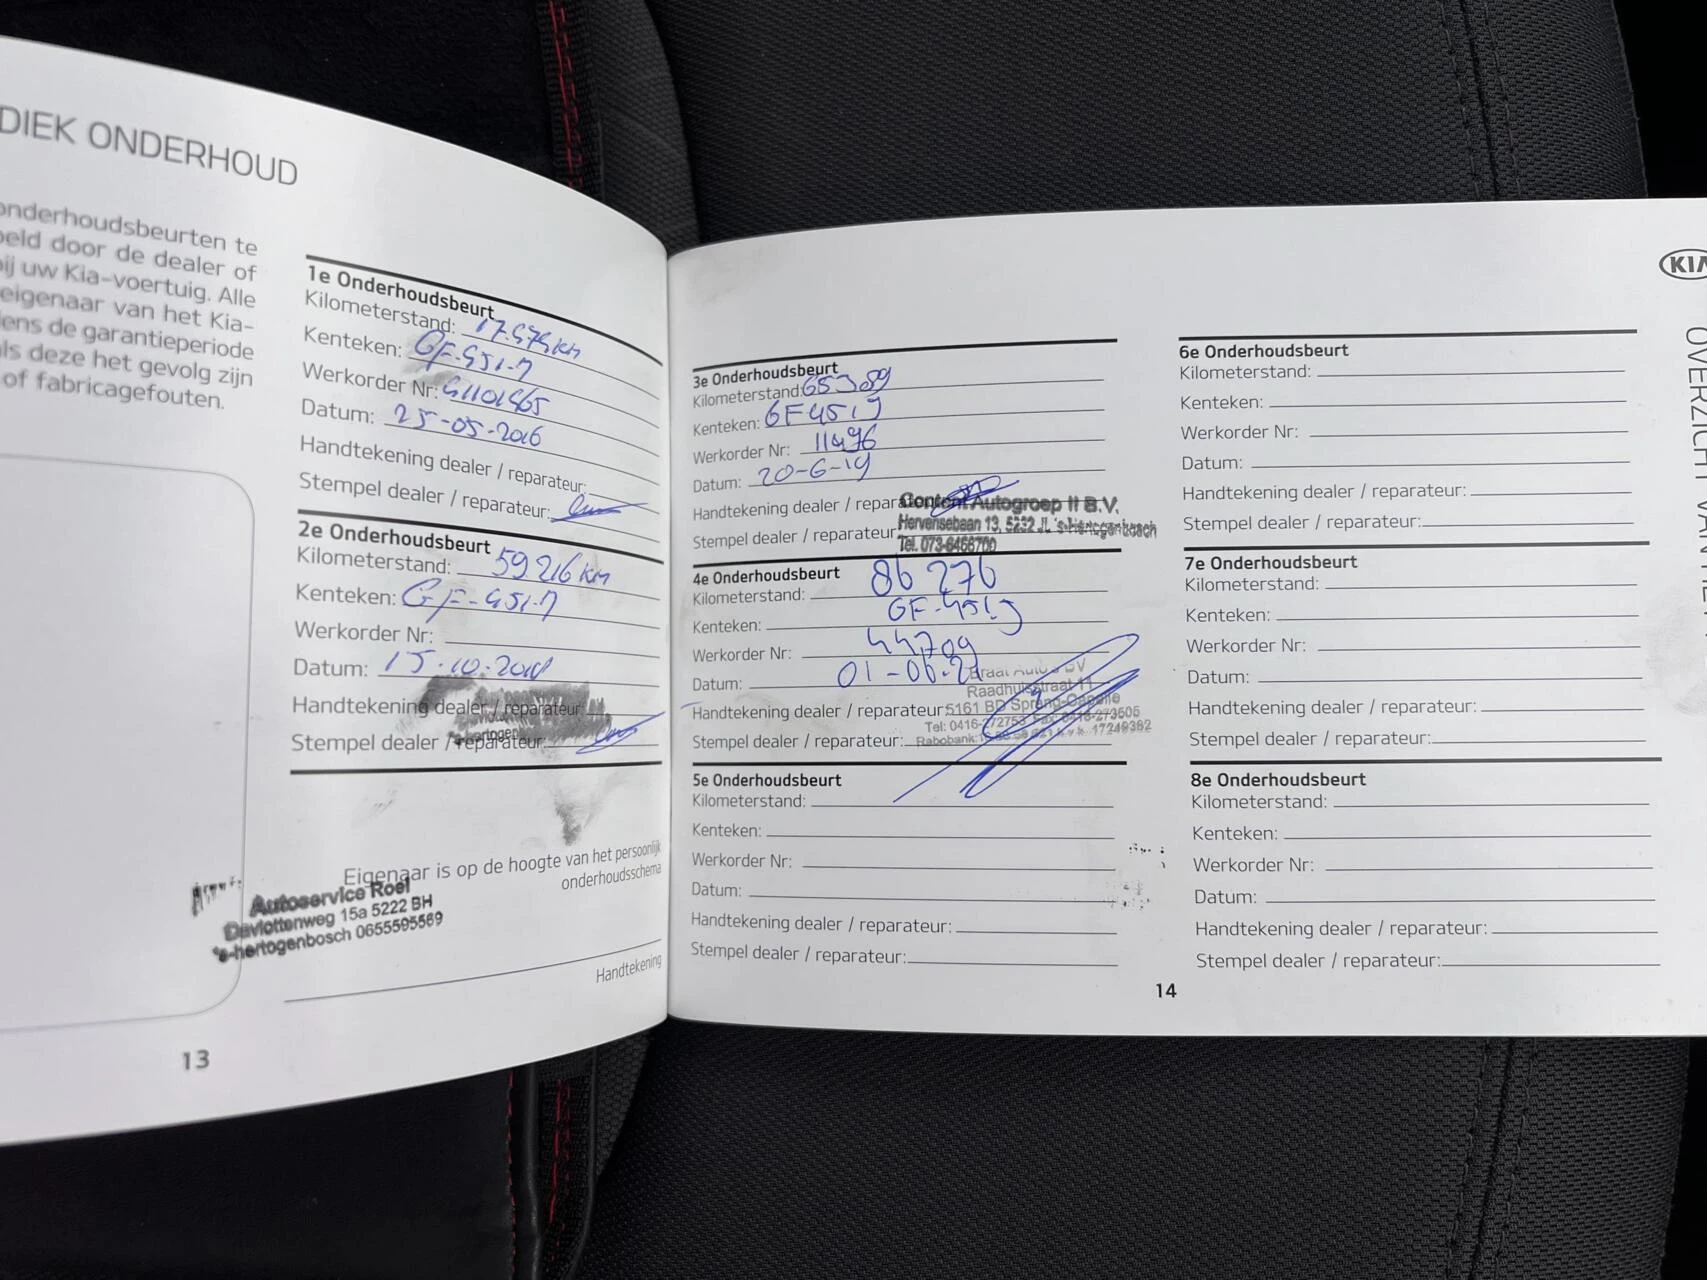 DIEK ONDERHOUD
onderhoudsbeurten te
door de dealer of
uw Kia-voertuig. Alle
eigenaar van het Kia-
de garantieperiode
deze het gevolg zijn
of fabricagefouten.
1e Onderhoudsbeurt
Kilometerstand: km
Kenteken: GF-451-
Werkorder Nr:
Datum: 25-05-2016
Handtekening dealer / reparateur:
Stempel dealer / reparateur:
2e Onderhoudsbeurt
Kilometerstand: 59.216 km
Kenteken: GF-451-
Werkorder Nr:
Datum: 15.10.
Handtekening dealer / reparateur:
Stempel dealer / reparateur:
Eigenaar is op de hoogte van het persoonlijk
onderhoudsschema
Autoservice Roel
15a 5222 BH
0655595569
Handtekening
13
3e Onderhoudsbeurt
Kilometerstand:
Kenteken: GF451J
Werkorder Nr: 11496
Datum: 20-6-19
Handtekening dealer / reparateur:
Autogroep II B.V.
Stempel dealer / reparateur:
Hervensebaan 13, 5232 JL 's-Hertogenbosch
Tel. 073-6466700
4e Onderhoudsbeurt
Kilometerstand: 86 276
Kenteken: GF-451-J
Werkorder Nr: 44709
Datum: 01-06-21
Raadhuisstraat 11
Handtekening dealer / reparateur:
5161 BD Sprang-Capelle
Stempel dealer / reparateur:
Tel: 0416-272753 Fax: 0416-273505
Rabobank: 17249382
5e Onderhoudsbeurt
Kilometerstand:
Kenteken:
Werkorder Nr:
Datum:
Handtekening dealer / reparateur:
Stempel dealer / reparateur:
KIA
OVERZICHT VAN HET
6e Onderhoudsbeurt
Kilometerstand:
Kenteken:
Werkorder Nr:
Datum:
Handtekening dealer / reparateur:
Stempel dealer / reparateur:
7e Onderhoudsbeurt
Kilometerstand:
Kenteken:
Werkorder Nr:
Datum:
Handtekening dealer / reparateur:
Stempel dealer / reparateur:
8e Onderhoudsbeurt
Kilometerstand:
Kenteken:
Werkorder Nr:
Datum:
Handtekening dealer / reparateur:
Stempel dealer / reparateur:
14